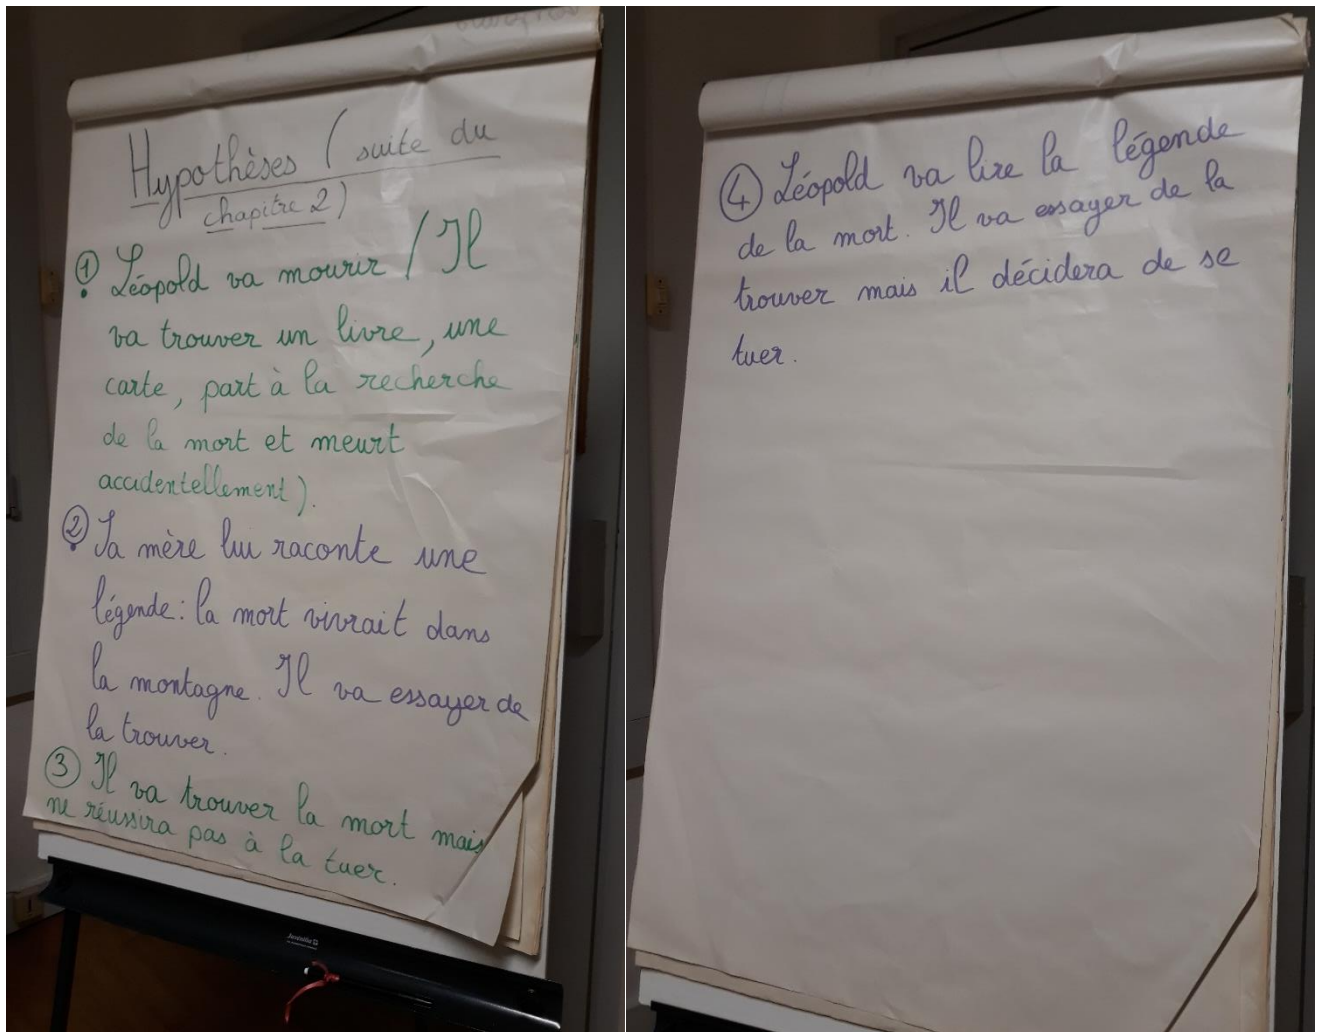 Hypothèses ( suite du
chapitre 2)
① Léopold va mourir / Il
va trouver un livre, une
carte, part à la recherche
de la mort et meurt
accidentellement).
② Sa mère lui raconte une
légende : la mort vivrait dans
la montagne. Il va essayer de
la trouver.
③ Il va trouver la mort mais
ne réussira pas à la tuer.
④ Léopold va lire la légende
de la mort. Il va essayer de la
trouver mais il décidera de se
tuer.